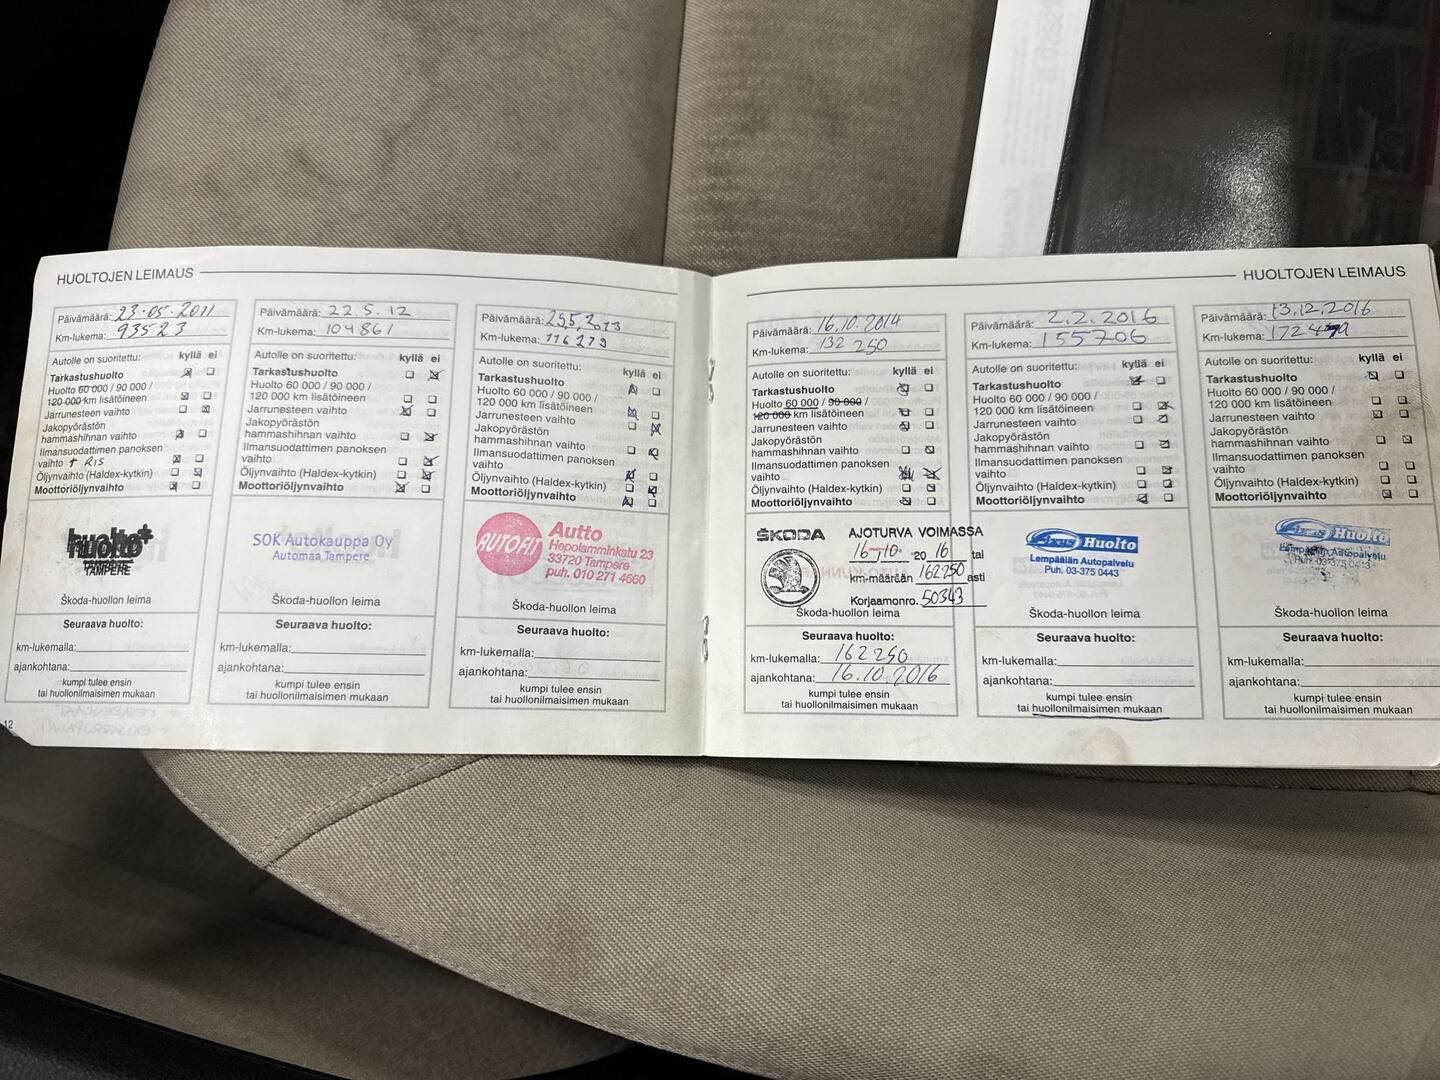 HUOLTOJEN LEIMAUS
Päivämäärä: 23.05.2011
Km-lukema: 93523
Autolle on suoritettu: kyllä ei
Tarkastushuolto
Huolto 60 000 / 90 000 /
120 000 km lisätöineen
Jarrunesteen vaihto
Jakopyörästön
hammashihnan vaihto
Ilmansuodattimen panoksen
vaihto + RIS
Öljynvaihto (Haldex-kytkin)
Moottoriöljynvaihto
huolto+
TAMPERE
Škoda-huollon leima
Seuraava huolto:
km-lukemalla:
ajankohtana:
kumpi tulee ensin
tai huollonilmaisimen mukaan
12
Päivämäärä: 22.5.12
Km-lukema: 104861
Autolle on suoritettu: kyllä ei
Tarkastushuolto
Huolto 60 000 / 90 000 /
120 000 km lisätöineen
Jarrunesteen vaihto
Jakopyörästön
hammashihnan vaihto
Ilmansuodattimen panoksen
vaihto
Öljynvaihto (Haldex-kytkin)
Moottoriöljynvaihto
SOK Autokauppa Oy
Automaa Tampere
Škoda-huollon leima
Seuraava huolto:
km-lukemalla:
ajankohtana:
kumpi tulee ensin
tai huollonilmaisimen mukaan
Päivämäärä: 29.5.2013
Km-lukema: 116279
Autolle on suoritettu: kyllä ei
Tarkastushuolto
Huolto 60 000 / 90 000 /
120 000 km lisätöineen
Jarrunesteen vaihto
Jakopyörästön
hammashihnan vaihto
Ilmansuodattimen panoksen
vaihto
Öljynvaihto (Haldex-kytkin)
Moottoriöljynvaihto
AUTOFIT
Autto
Hepolamminkatu 23
33720 Tampere
puh. 010 271 4660
Škoda-huollon leima
Seuraava huolto:
km-lukemalla:
ajankohtana:
kumpi tulee ensin
tai huollonilmaisimen mukaan
HUOLTOJEN LEIMAUS
Päivämäärä: 16.10.2014
Km-lukema: 132 250
Autolle on suoritettu: kyllä ei
Tarkastushuolto
Huolto 60 000 / 90 000 /
120 000 km lisätöineen
Jarrunesteen vaihto
Jakopyörästön
hammashihnan vaihto
Ilmansuodattimen panoksen
vaihto
Öljynvaihto (Haldex-kytkin)
Moottoriöljynvaihto
ŠKODA AJOTURVA VOIMASSA
16.10. 20 16 tai
km-määrään 162250 asti
Korjaamonro. 50343
Škoda-huollon leima
Seuraava huolto:
km-lukemalla: 162250
ajankohtana: 16.10.2016
kumpi tulee ensin
tai huollonilmaisimen mukaan
Päivämäärä: 2.2.2016
Km-lukema: 155706
Autolle on suoritettu: kyllä ei
Tarkastushuolto
Huolto 60 000 / 90 000 /
120 000 km lisätöineen
Jarrunesteen vaihto
Jakopyörästön
hammashihnan vaihto
Ilmansuodattimen panoksen
vaihto
Öljynvaihto (Haldex-kytkin)
Moottoriöljynvaihto
Huolto
Lempäälän Autopalvelu
Puh. 03-375 0443
Škoda-huollon leima
Seuraava huolto:
km-lukemalla:
ajankohtana:
kumpi tulee ensin
tai huollonilmaisimen mukaan
Päivämäärä: 13.12.2016
Km-lukema:
Autolle on suoritettu: kyllä ei
Tarkastushuolto
Huolto 60 000 / 90 000 /
120 000 km lisätöineen
Jarrunesteen vaihto
Jakopyörästön
hammashihnan vaihto
Ilmansuodattimen panoksen
vaihto
Öljynvaihto (Haldex-kytkin)
Moottoriöljynvaihto
Huolto
Lempäälän Autopalvelu
Puh. 03-375 0443
Škoda-huollon leima
Seuraava huolto:
km-lukemalla:
ajankohtana:
kumpi tulee ensin
tai huollonilmaisimen mukaan